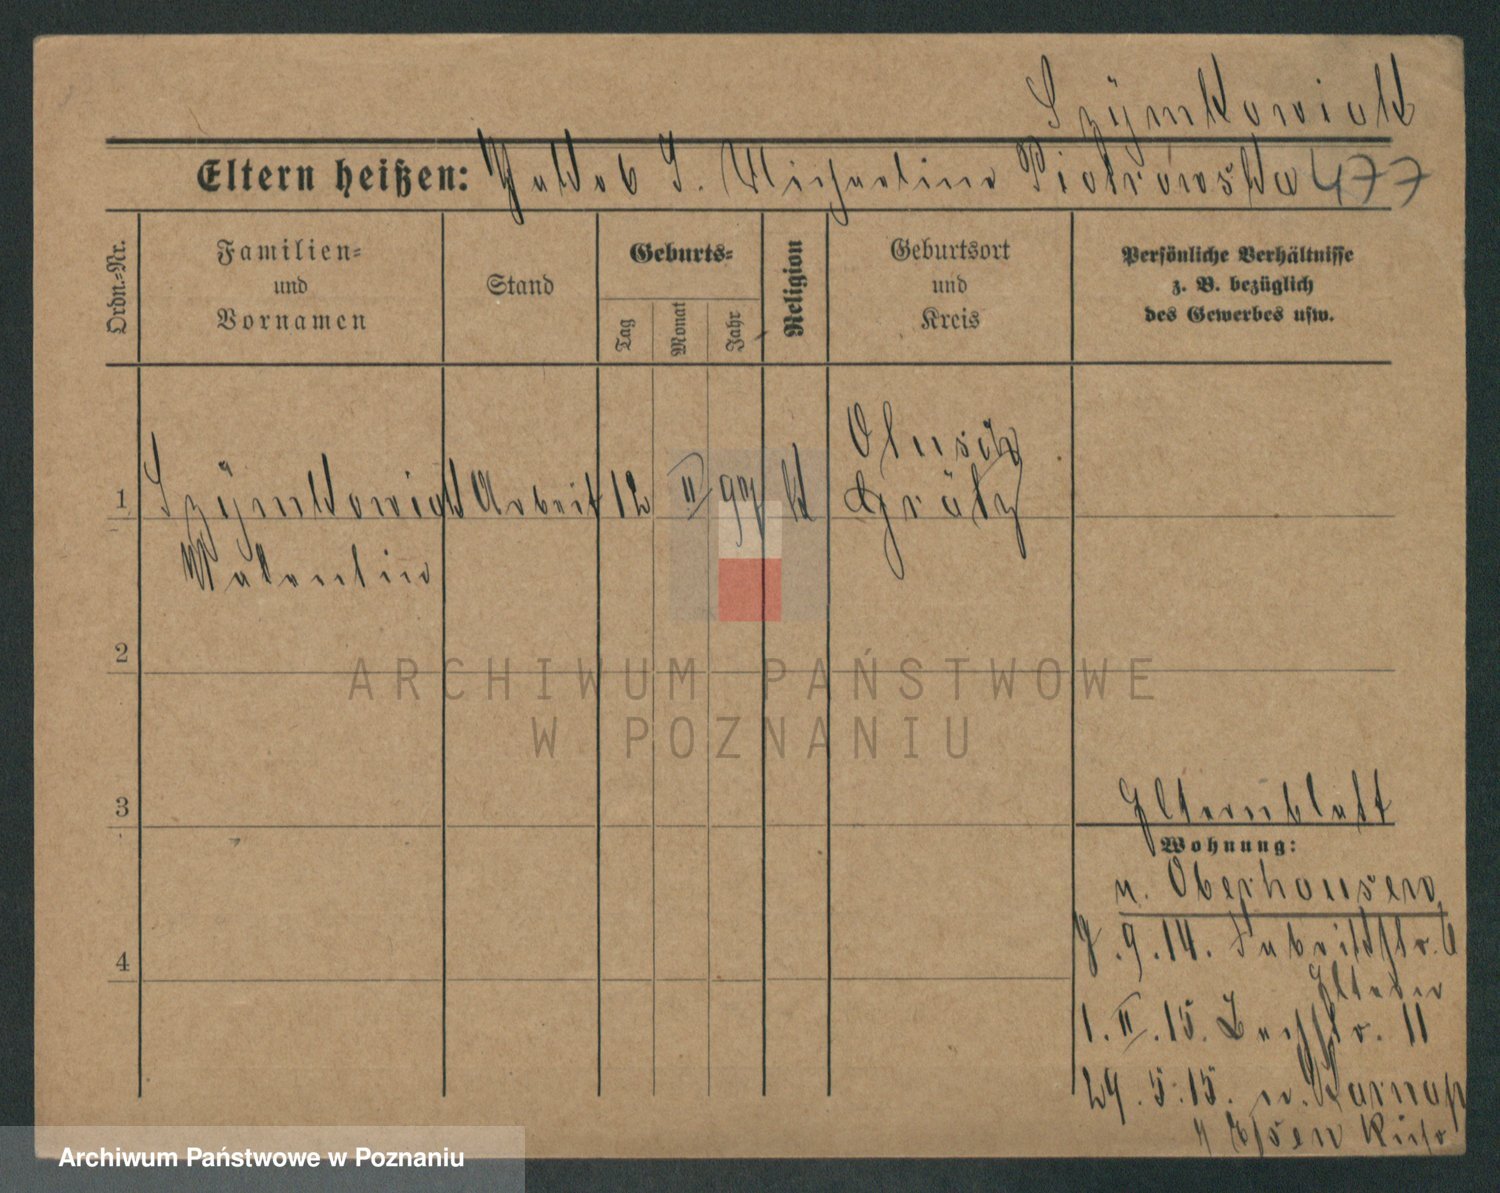 Szÿmkowiak
Eltern heißen: Jakob u. Michaelina Piotrowska 477
Ordn.-Nr.
Familien-
und
Vornamen
Stand
Geburts-
Tag
Monat
Jahr
Religion
Geburtsort
und
Kreis
Persönliche Verhältnisse
z. B. bezüglich
des Gewerbes usw.
1
Szÿmkowiak Arbeit 12 II 97 k
Valentin
Grätz
2
3
4
Elternblatt
Wohnung:
n. Oberhausen
7.9.14. Fabrikstr. 6
Eltern
1.II.15. Bachstr. 11
29.5.15. n. Karnap
Essen
ARCHIWUM PAŃSTWOWE
W POZNANIU
Archiwum Państwowe w Poznaniu